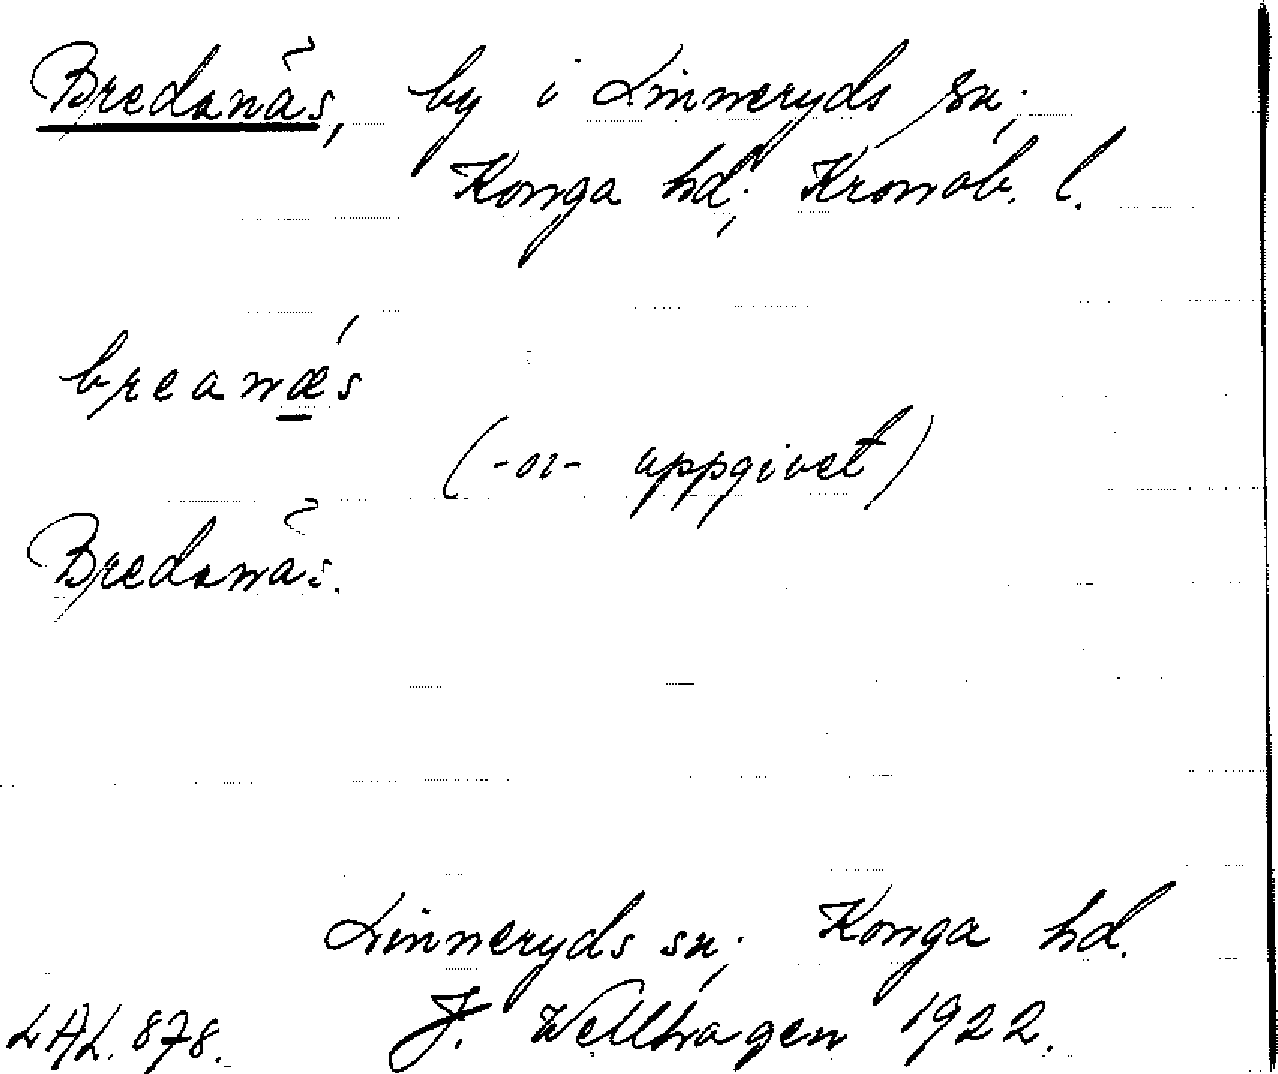 Bredanäs, by i Linneryds sn;
Konga hd; Kronob. l.
breanǽs
(-o1- uppgivet)
Bredanäs.
Linneryds sn; Konga hd.
LAL. 878. J. Wellhagen 1922.